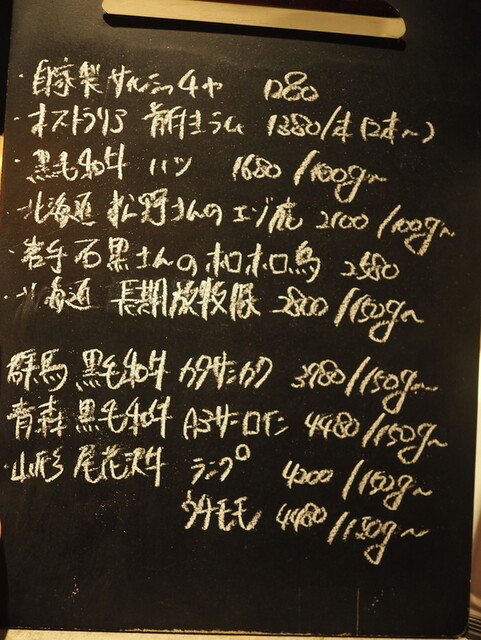 ・自家製サルシッチャ 1280
・オストラリア 骨付きラム 1380/本(2本〜)
・黒毛和牛 ハツ 1680/100g〜
・北海道 松野さんのエゾ鹿 2100/100g〜
・岩手 石黒さんのホロホロ鳥 2580
・北海道 長期放牧豚 2800/150g〜
群馬 黒毛和牛 カタサンカク 3980/150g〜
青森 黒毛和牛 A3サーロイン 4480/150g〜
・山形 尾花沢牛 ランプ 4200/150g〜
ウチモモ 4480/150g〜